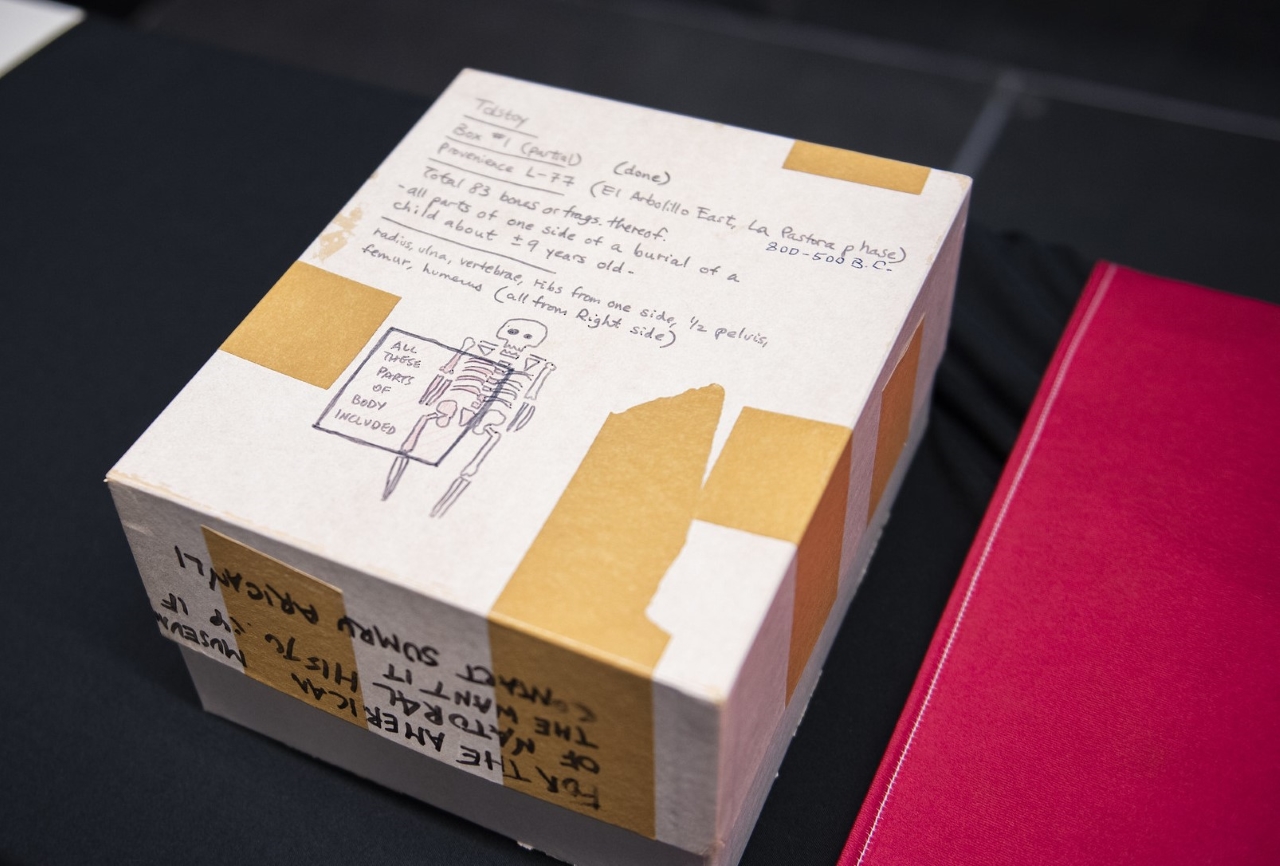 Tolstoy
Box #1 (partial) (done)
Provenience L-77 (El Arbolillo East, La Pastora phase)
800-500 B.C.
Total 83 bones or frags. thereof.
-all parts of one side of a burial of a
child about ±9 years old-
radius, ulna, vertebrae, ribs from one side, 1/2 pelvis,
femur, humerus (all from Right side)
ALL
THESE
PARTS
OF
BODY
INCLUDED
FOR THE AMERICAN MUSEUM
OF NATURAL HISTO IF
THE WANT IT